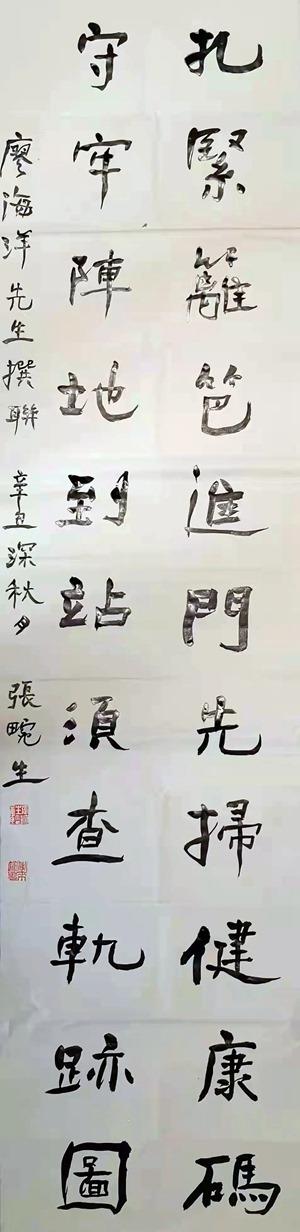 扎緊籬笆進門先掃健康碼
守牢陣地到站須查軌跡圖
廖海洋先生撰聯 辛丑深秋月 張畹生